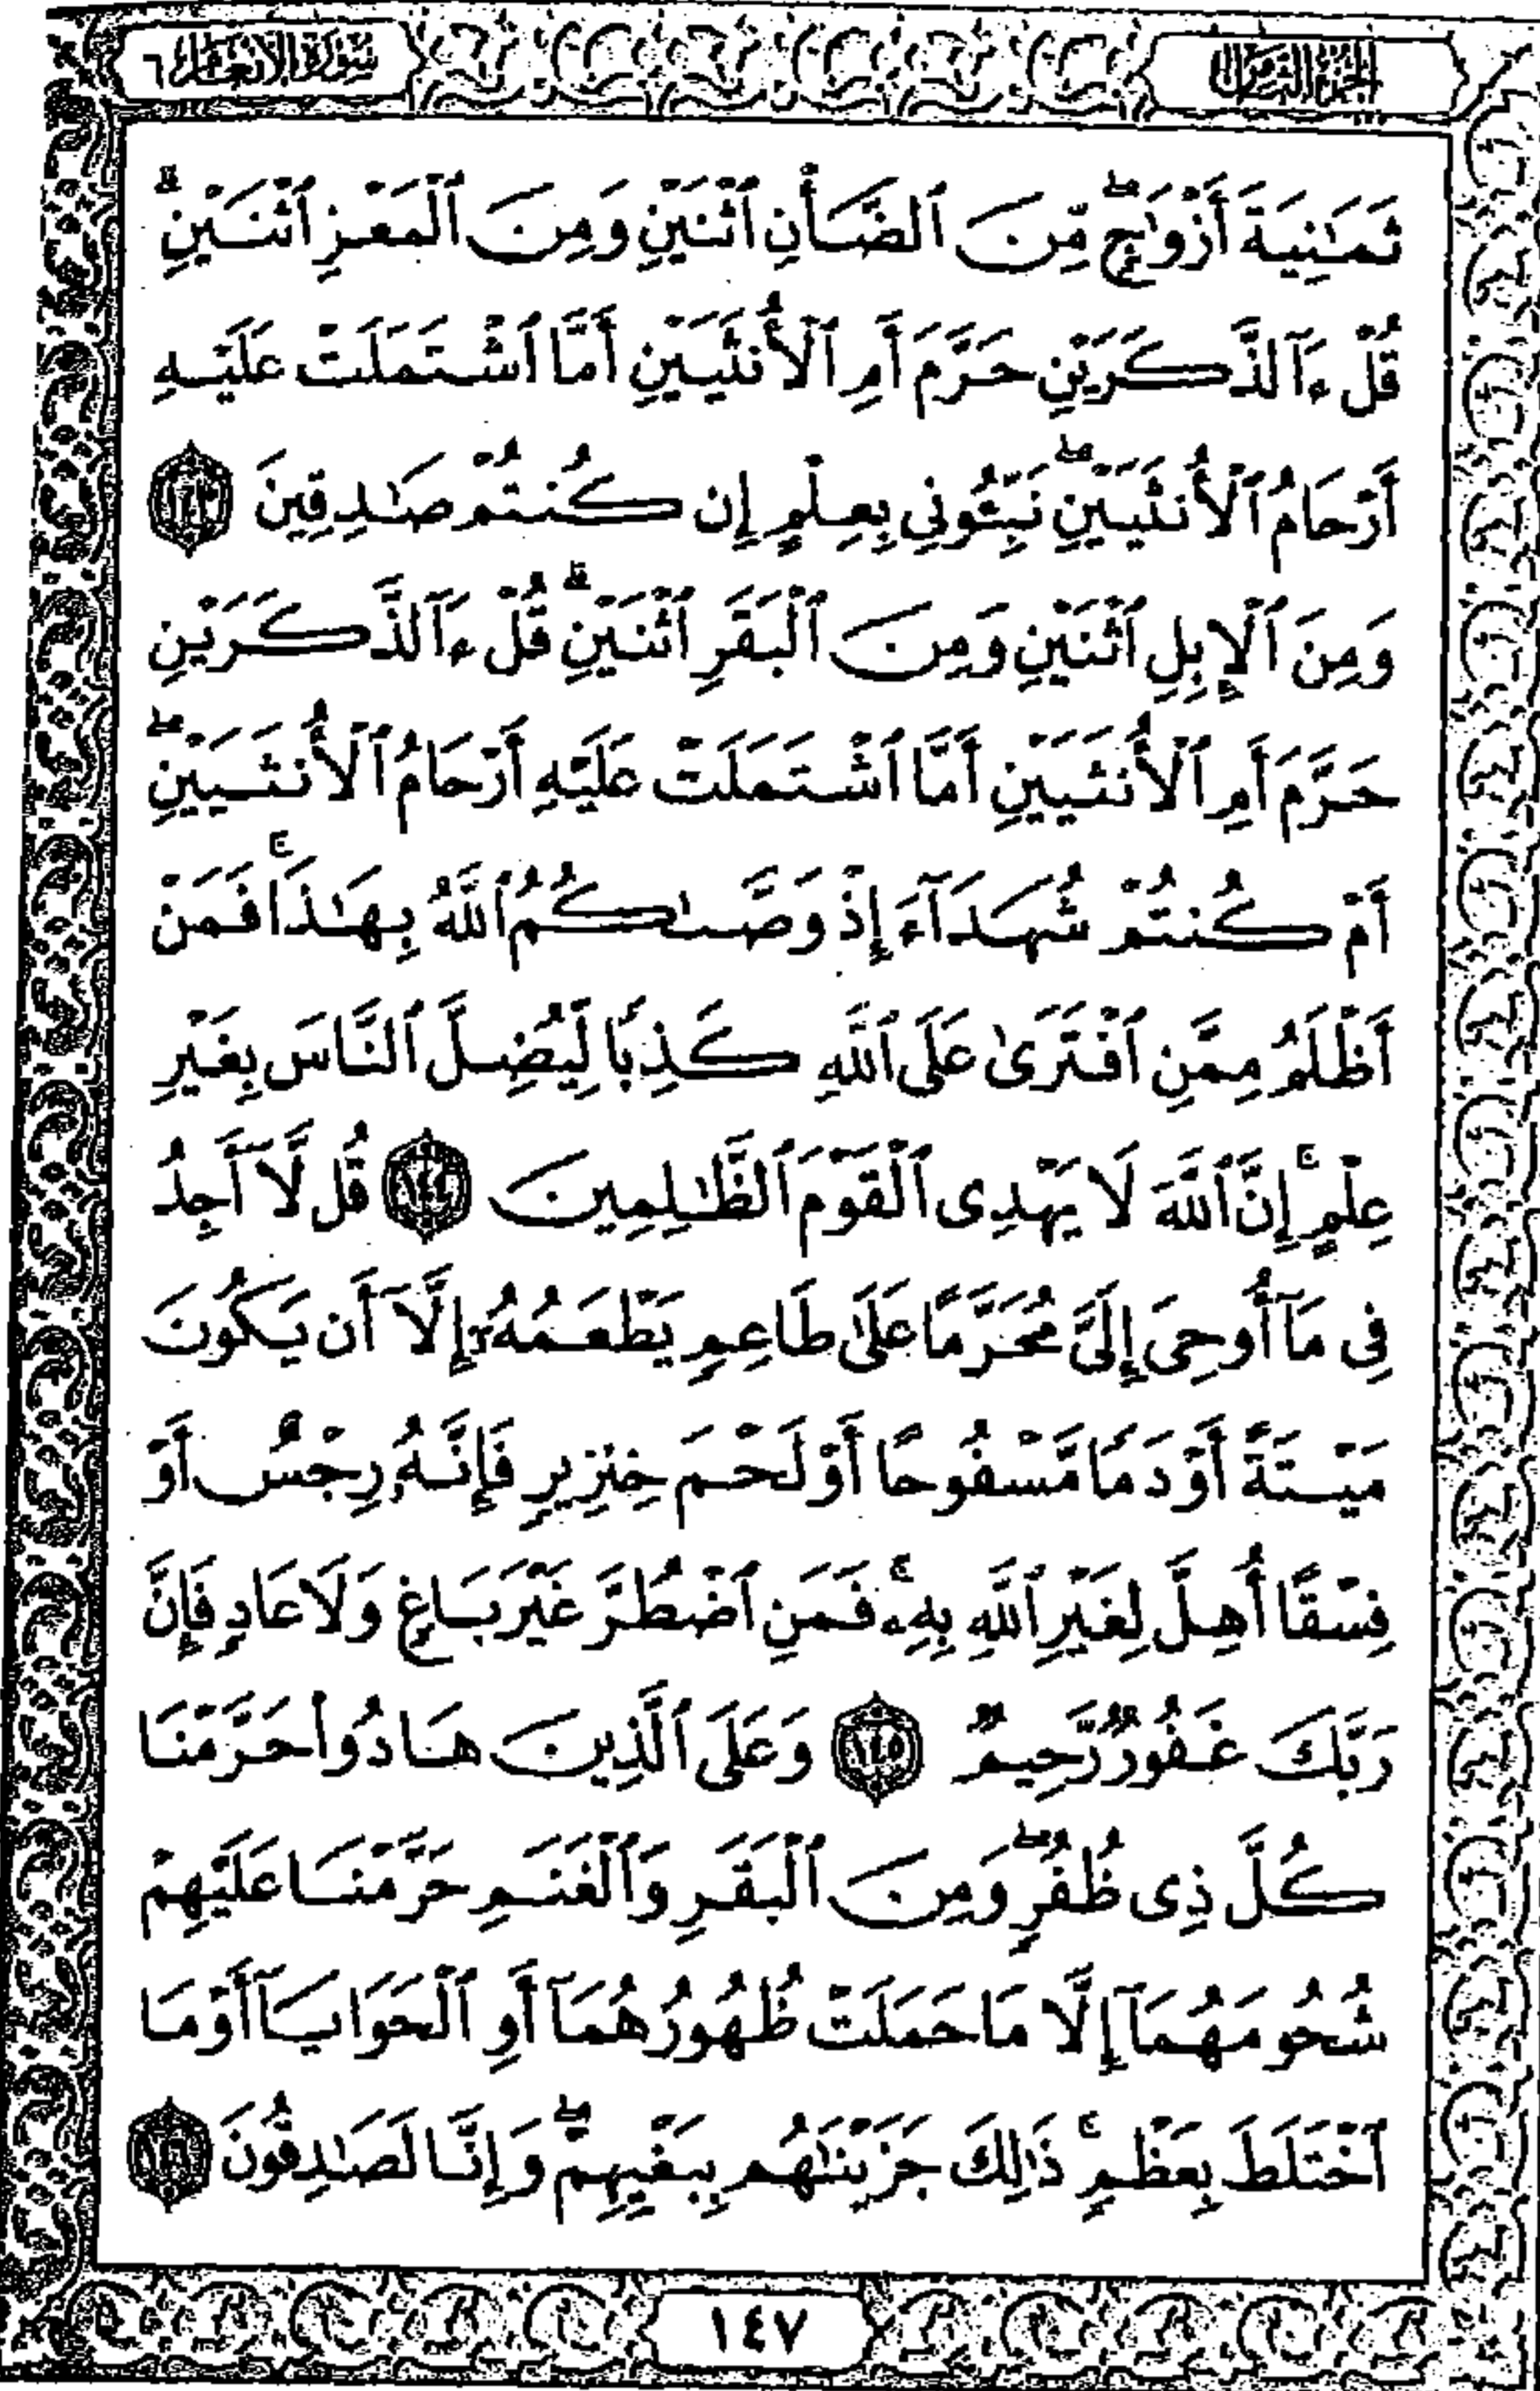 الجزء الثامن
سورة الأنعام ٦
ثَمَٰنِيَةَ أَزْوَٰجٍۖ مِّنَ ٱلضَّأْنِ ٱثْنَيْنِ وَمِنَ ٱلْمَعْزِ ٱثْنَيْنِۗ
قُلْ ءَآلذَّكَرَيْنِ حَرَّمَ أَمِ ٱلْأُنثَيَيْنِ أَمَّا ٱشْتَمَلَتْ عَلَيْهِ
أَرْحَامُ ٱلْأُنثَيَيْنِۖ نَبِّـُٔونِي بِعِلْمٍ إِن كُنتُمْ صَٰدِقِينَ ١٤٣
وَمِنَ ٱلْإِبِلِ ٱثْنَيْنِ وَمِنَ ٱلْبَقَرِ ٱثْنَيْنِۗ قُلْ ءَآلذَّكَرَيْنِ
حَرَّمَ أَمِ ٱلْأُنثَيَيْنِ أَمَّا ٱشْتَمَلَتْ عَلَيْهِ أَرْحَامُ ٱلْأُنثَيَيْنِۖ
أَمْ كُنتُمْ شُهَدَآءَ إِذْ وَصَّىٰكُمُ ٱللَّهُ بِهَٰذَاۚ فَمَنْ
أَظْلَمُ مِمَّنِ ٱفْتَرَىٰ عَلَى ٱللَّهِ كَذِبًا لِّيُضِلَّ ٱلنَّاسَ بِغَيْرِ
عِلْمٍۚ إِنَّ ٱللَّهَ لَا يَهْدِى ٱلْقَوْمَ ٱلظَّٰلِمِينَ ١٤٤ قُل لَّآ أَجِدُ
فِى مَآ أُوحِىَ إِلَىَّ مُحَرَّمًا عَلَىٰ طَاعِمٍ يَطْعَمُهُۥٓ إِلَّآ أَن يَكُونَ
مَيْتَةً أَوْ دَمًا مَّسْفُوحًا أَوْ لَحْمَ خِنزِيرٍ فَإِنَّهُۥ رِجْسٌ أَوْ
فِسْقًا أُهِلَّ لِغَيْرِ ٱللَّهِ بِهِۦۚ فَمَنِ ٱضْطُرَّ غَيْرَ بَاغٍ وَلَا عَادٍ فَإِنَّ
رَبَّكَ غَفُورٌ رَّحِيمٌ ١٤٥ وَعَلَى ٱلَّذِينَ هَادُوا۟ حَرَّمْنَا
كُلَّ ذِى ظُفُرٍۖ وَمِنَ ٱلْبَقَرِ وَٱلْغَنَمِ حَرَّمْنَا عَلَيْهِمْ
شُحُومَهُمَآ إِلَّا مَا حَمَلَتْ ظُهُورُهُمَآ أَوِ ٱلْحَوَايَآ أَوْ مَا
ٱخْتَلَطَ بِعَظْمٍۚ ذَٰلِكَ جَزَيْنَٰهُم بِبَغْيِهِمْۖ وَإِنَّا لَصَٰدِقُونَ ١٤٦
١٤٧